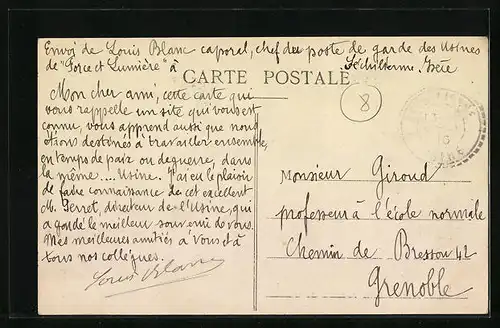 Envoi de Louis Blanc caporal, chef du poste de garde des Usines
de "Force et Lumière" à St Guillerme. Isère
CARTE POSTALE
8
Mon cher ami, cette carte qui
vous rappelle un site qui vous est
connu, vous apprend aussi que nous
étions destinés à travailler ensemble,
en temps de paix ou de guerre, dans
la même .... Usine. J'ai eu le plaisir
de faire connaissance de cet excellent
M. Perret, directeur de l'Usine, qui
a gardé le meilleur souvenir de vous.
Mes meilleures amitiés à vous et à
tous nos collègues.
Louis Blanc
Monsieur Giroud
professeur à l'école normale
Chemin de Bresson 42
Grenoble